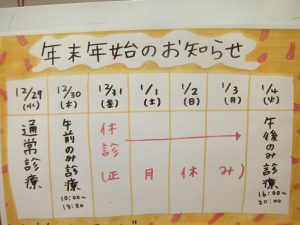 年末年始のお知らせ
12/29 (水) 12/30 (木) 12/31 (金) 1/1 (土) 1/2 (日) 1/3 (月) 1/4 (火)
通常診療
午前のみ診療
10:00~
13:30
休診
(正月休み)
午後のみ診療
16:00~
20:00